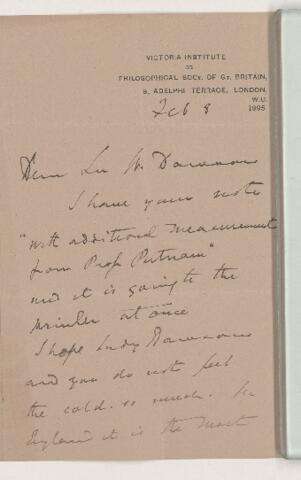 VICTORIA INSTITUTE
OR
PHILOSOPHICAL SOCY. OF GT. BRITAIN,
8, ADELPHI TERRACE, LONDON,
W.C.
Feb 8 1895
Dear Sir W. Dawson
I have your note
"with additional measurement
from Prof Putnam"
and it is going to the
printer at once
I hope Lady Dawson
and you do not feel
the cold so much. In
England it is the most